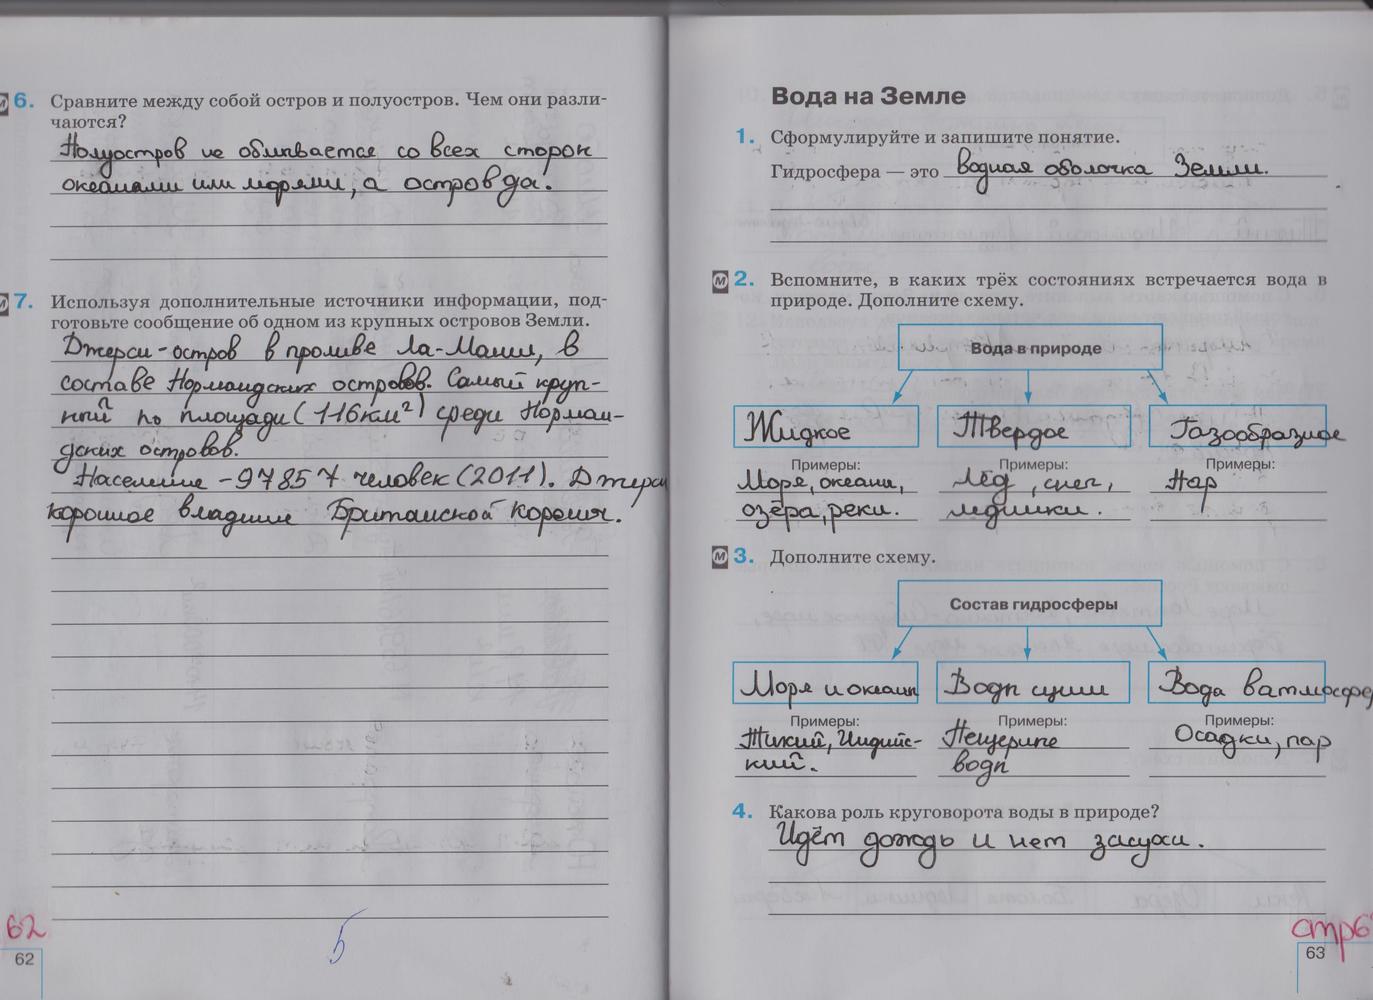 6. Сравните между собой остров и полуостров. Чем они разли-
чаются?
Полуостров не обливается со всех сторон
океанами или морями, а остров да.
7. Используя дополнительные источники информации, под-
готовьте сообщение об одном из крупных островов Земли.
Джерси-остров в проливе Ла-Манш, в
составе Нормандских островов. Самый круп-
ный по площади (116км²) среди Норман-
дских островов.
Население - 97857 человек (2011). Джерси
коронное владение Британской короны.
5
62
62
Вода на Земле
1. Сформулируйте и запишите понятие.
Гидросфера — это водная оболочка Земли.
М 2. Вспомните, в каких трёх состояниях встречается вода в
природе. Дополните схему.
Вода в природе
Жидкое Твердое Газообразное
Примеры: Примеры: Примеры:
Моря, океаны, Лёд, снег, Пар
озёра, реки. ледники.
М 3. Дополните схему.
Состав гидросферы
Моря и океаны Воды суши Вода в атмосфере
Примеры: Примеры: Примеры:
Тихий, Индийс- Пещерные Осадки, пар
кий. воды
4. Какова роль круговорота воды в природе?
Идёт дождь и нет засухи.
стр6
63